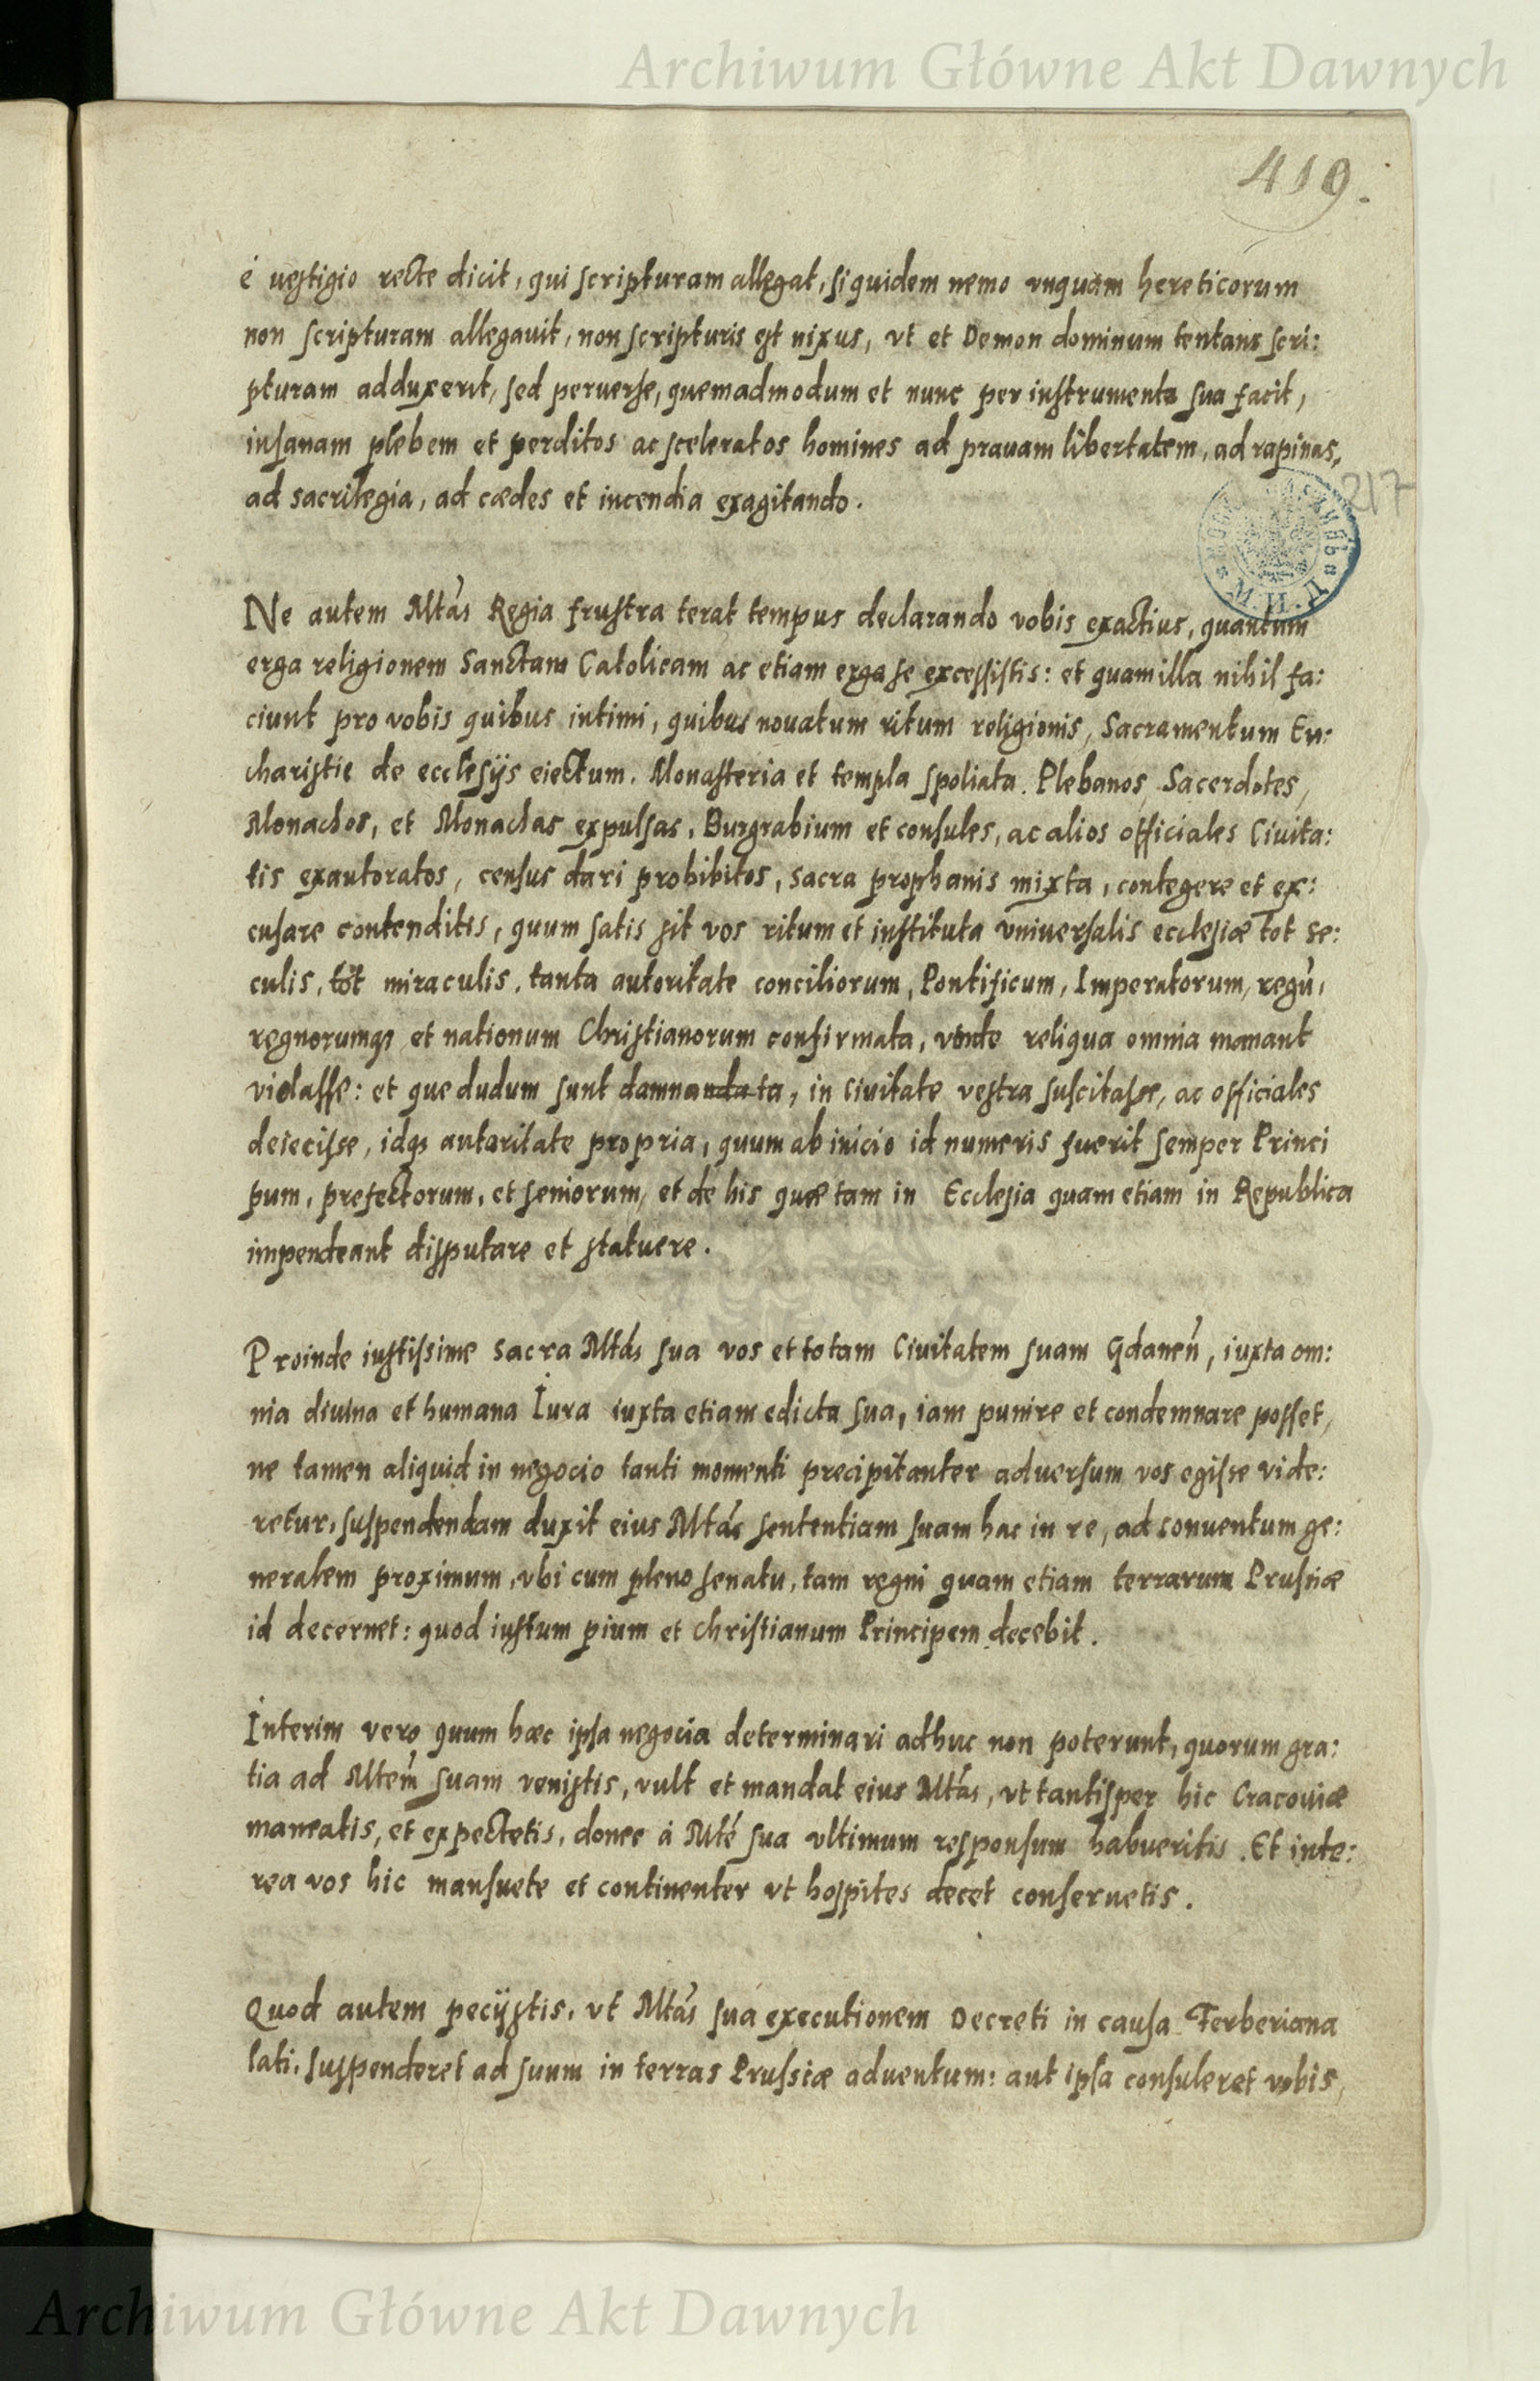 Archiwum Główne Akt Dawnych
419.
é uestigio recte dicit, qui scripturam allegat, siquidem nemo vnquam hereticorum
non scripturam allegauit, non scripturis est nixus, vt et Demon dominum tentans scri:
pturam adduxerit, sed peruerse, quemadmodum et nunc per instrumenta sua facit,
insanam plebem et perditos ac sceleratos homines ad prauam libertatem, ad rapinas,
ad sacrilegia, ad cædes et incendia exagitando.
217
Ne autem Mtás Regia frustra terat tempus declarando vobis exactius, quantum
erga religionem Sanctam Catolicam ac etiam erga se excessistis: et quam illa nihil fa:
ciunt pro vobis quibus intimi, quibus nouatum ritum religionis, Sacramentum Eu:
charistie de ecclesijs eiectum. Monasteria et templa spoliata. Plebanos, Sacerdotes,
Monachos, et Monachas expulsas, Burgrabium et consules, ac alios officiales Ciuita:
tis exautoratos, census dari prohibitos, sacra prophanis mixta, contegere et ex:
cusare contenditis, quum satis sit vos ritum et instituta vniuersalis ecclesiæ tot se:
culis, tot miraculis, tanta autoritate conciliorum, Pontificum, Imperatorum, regū,
regnorumq₃ et nationum Christianorum confirmata, vnde reliqua omnia manant
violasse: et que dudum sunt damnanda ta, in ciuitate vestra suscitasse, ac officiales
deiecisse, idq₃ autoritate propria, quum ab inicio id numeris fuerit semper Princi
pum, prefectorum, et seniorum, et de his quæ tam in Ecclesia quam etiam in Republica
impendeant disputare et statuere.
Proinde iustissime Sacra Mtás sua vos et totam Ciuitatem suam Gdaneñ, iuxta om:
nia diuina et humana Iura iuxta etiam edicta sua, iam punire et condemnare posset,
ne tamen aliquid in negocio tanti momenti precipitanter aduersum vos egisse vide:
retur, suspendendam duxit eius Mtás sententiam suam hac in re, ad conuentum ge:
neralem proximum, vbi cum pleno senatu, tam regni quam etiam terrarum Prussiæ
id decernet: quod iustum pium et christianum Principem decebit.
Interim vero quum hæc ipsa negocia determinari adhuc non poterunt, quorum gra:
tia ad Mtem̃ suam venistis, vult et mandat eius Mtás, vt tantisper hic Cracouiæ
maneatis, et expectetis, donec à Mté sua vltimum responsum habueritis. Et inte:
rea vos hic mansuete et continenter vt hospites decet conseruetis.
Quod autem pecijstis, vt Mtás sua executionem Decreti in causa Ferberiana
lati, suspenderet ad suum in terras Prussiæ aduentum: aut ipsa consuleret vobis,
Archiwum Główne Akt Dawnych